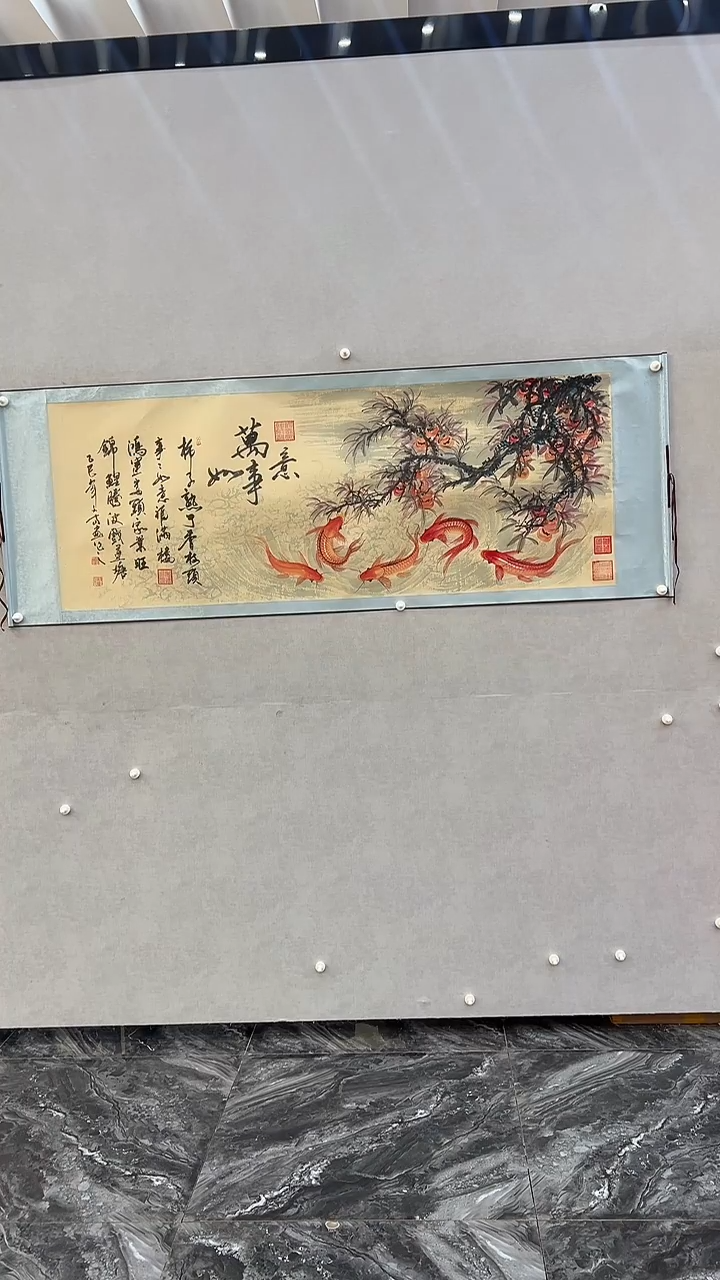 萬事如意
柿子熟了香枝頭
事〻如意福滿樓
鴻運當頭家業旺
錦鯉騰波戲
乙巳年